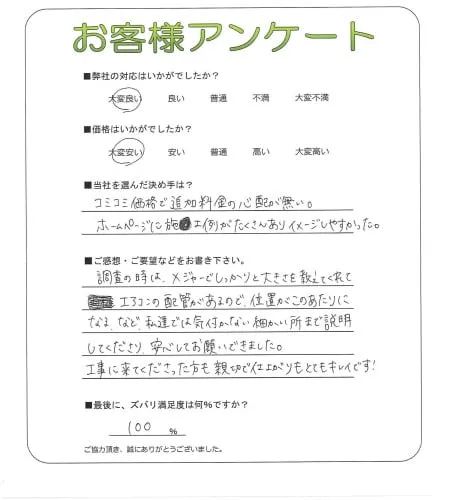 お客様アンケート
■弊社の対応はいかがでしたか？
大変良い 良い 普通 不満 大変不満
■価格はいかがでしたか？
大変安い 安い 普通 高い 大変高い
■当社を選んだ決め手は？
コミコミ価格で追加料金の心配が無い。
ホームページに施工例がたくさんありイメージしやすかった。
■ご感想・ご要望などをお書き下さい。
調査の時は、メジャーでしっかりと大きさを教えてくれて
エアコンの配管があるので、位置がこのあたりに
なる、など、私達では気付かない細かい所まで説明
してくださり、安心してお願いできました。
工事に来てくださった方も親切で仕上がりもとてもキレイです！
■最後に、ズバリ満足度は何％ですか？
100 %
ご協力頂き、誠にありがとうございました。